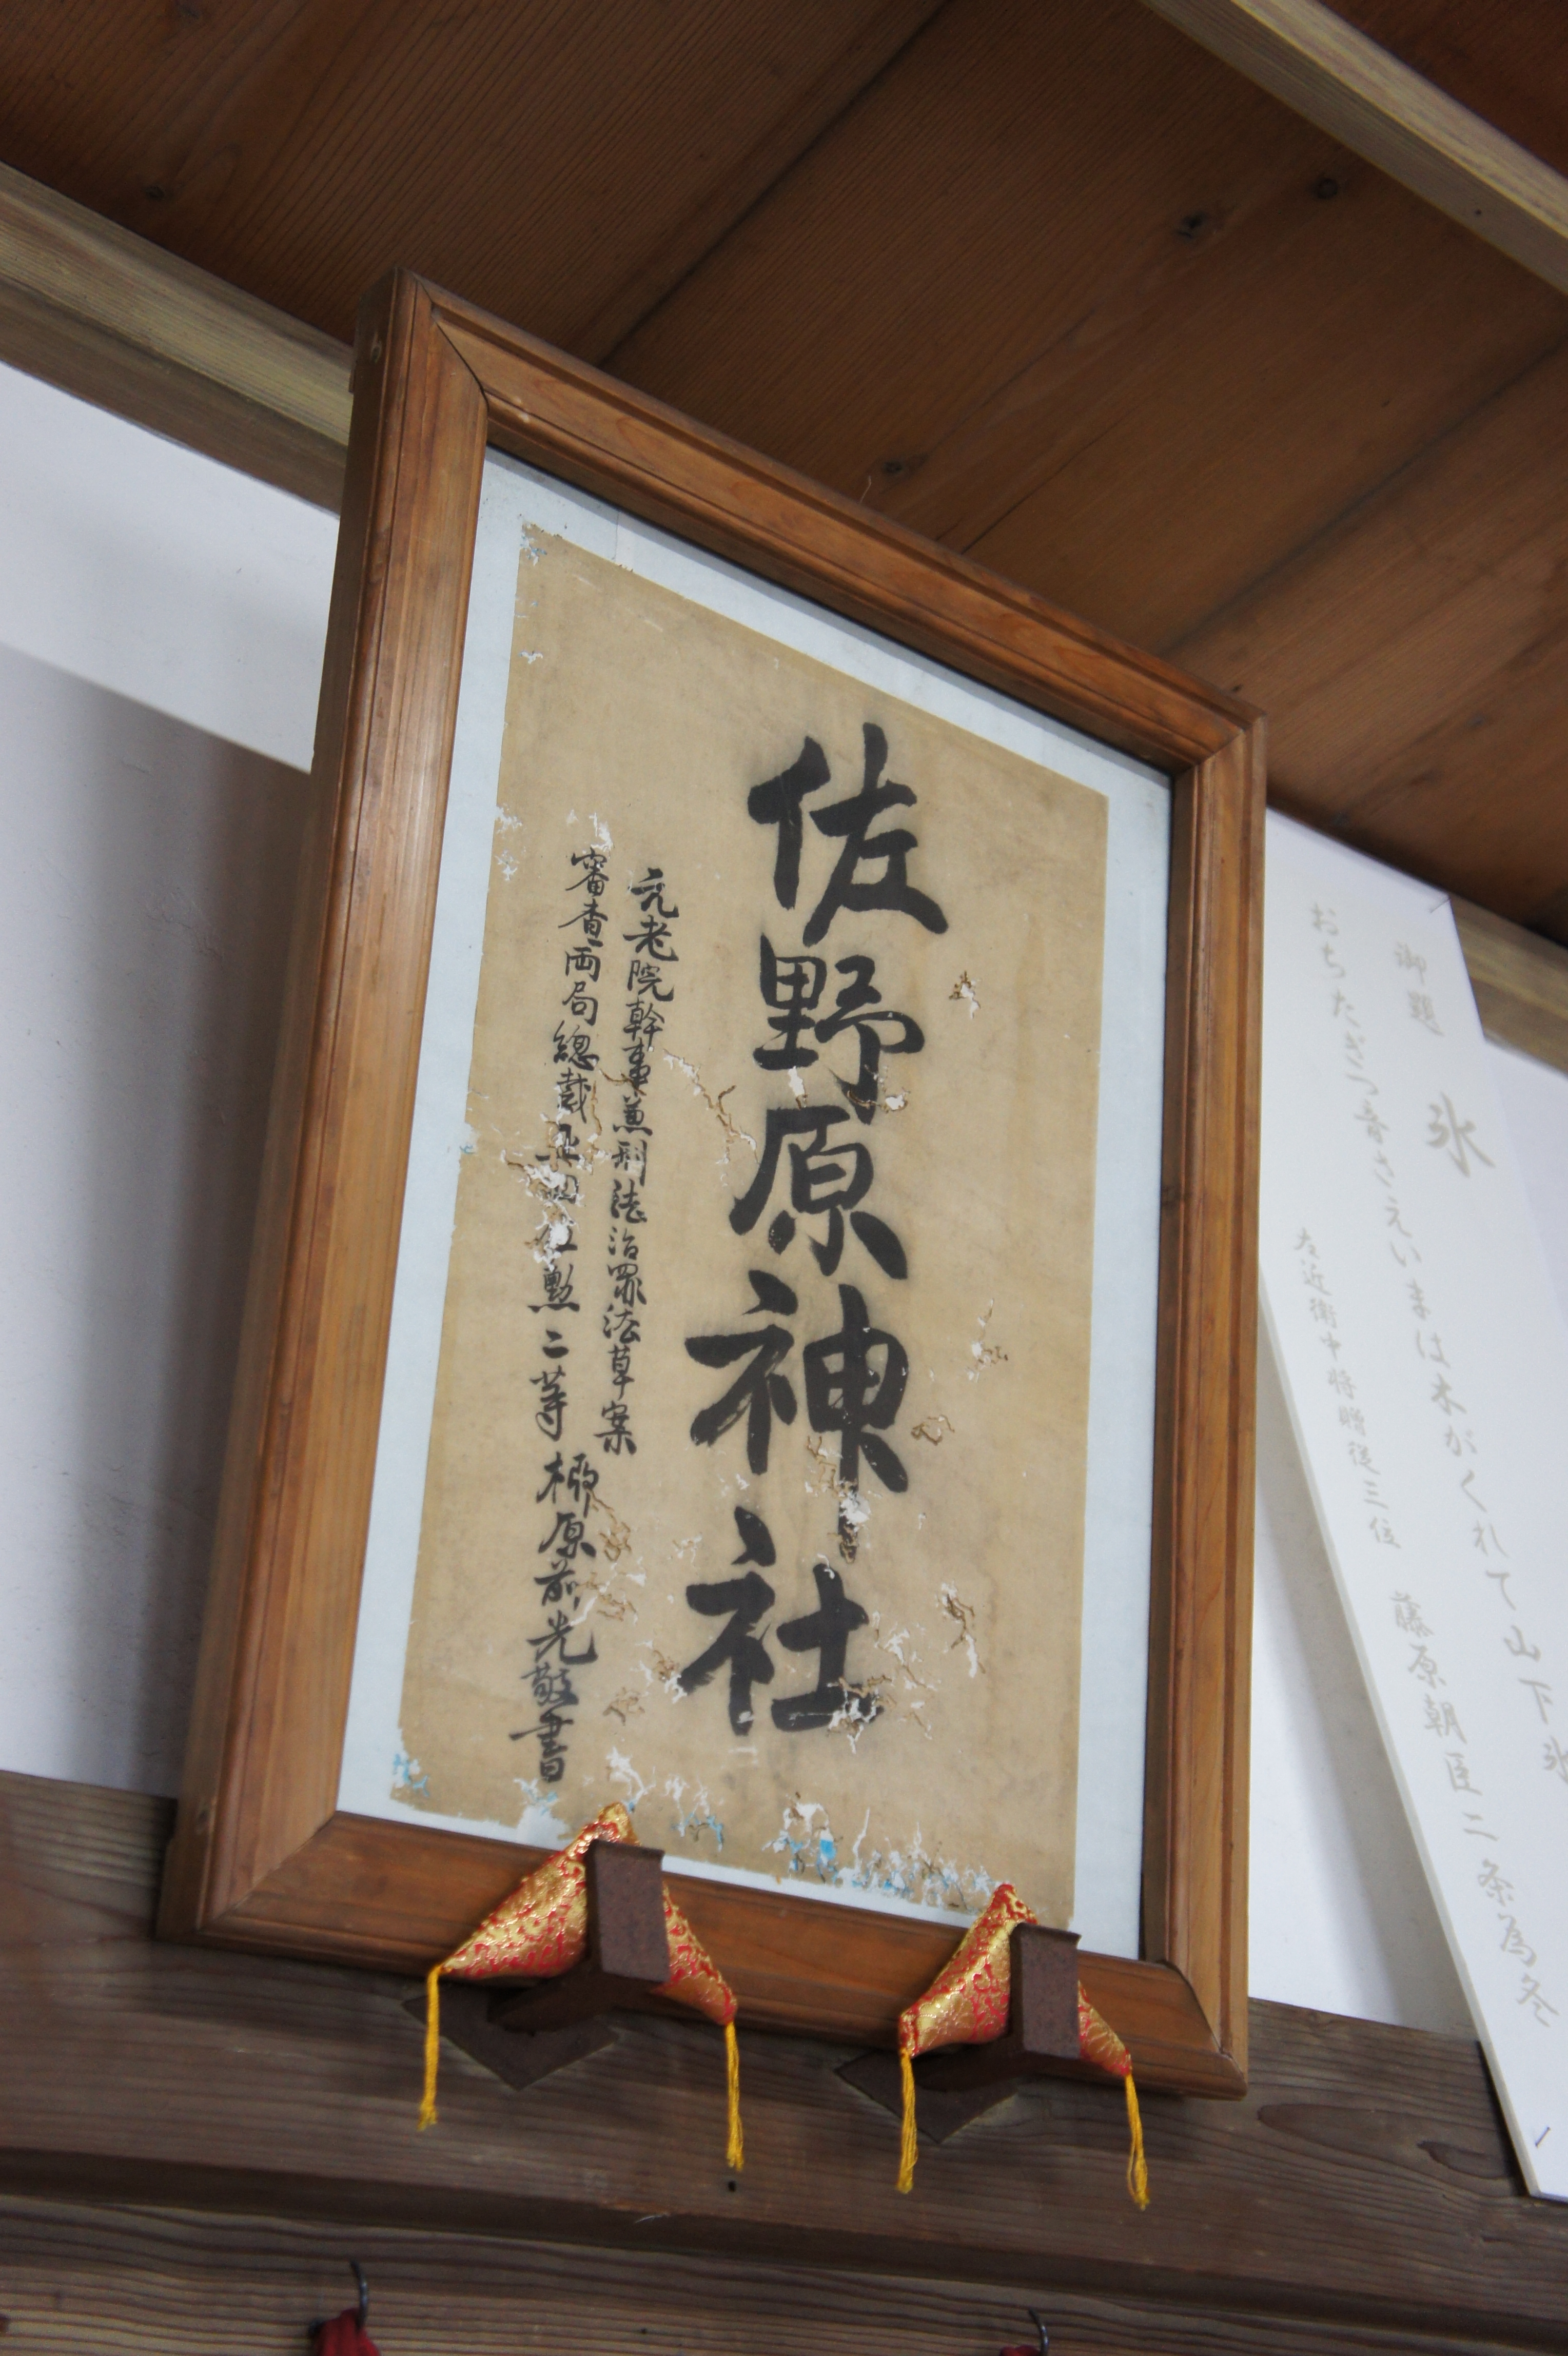 御題 氷
おちたぎつ音さえいまは木がくれて山下氷
左近衛中将贈従三位 藤原朝臣二条為冬
佐野原神社
元老院幹事兼刑法治罪法草案
審査両局總裁 四位勲二等 柳原前光敬書